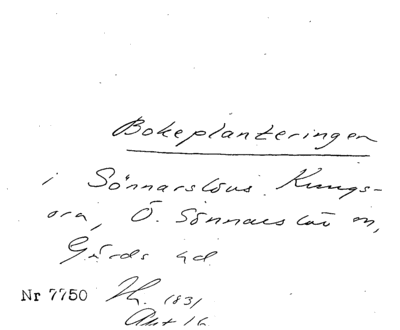 Bokeplanteringen
i Sönnarslövs Kungs-
ora, Ö. Sönnarslöv sn,
Gärds hd
Nr 7750 Hk. 1831
Akt 16